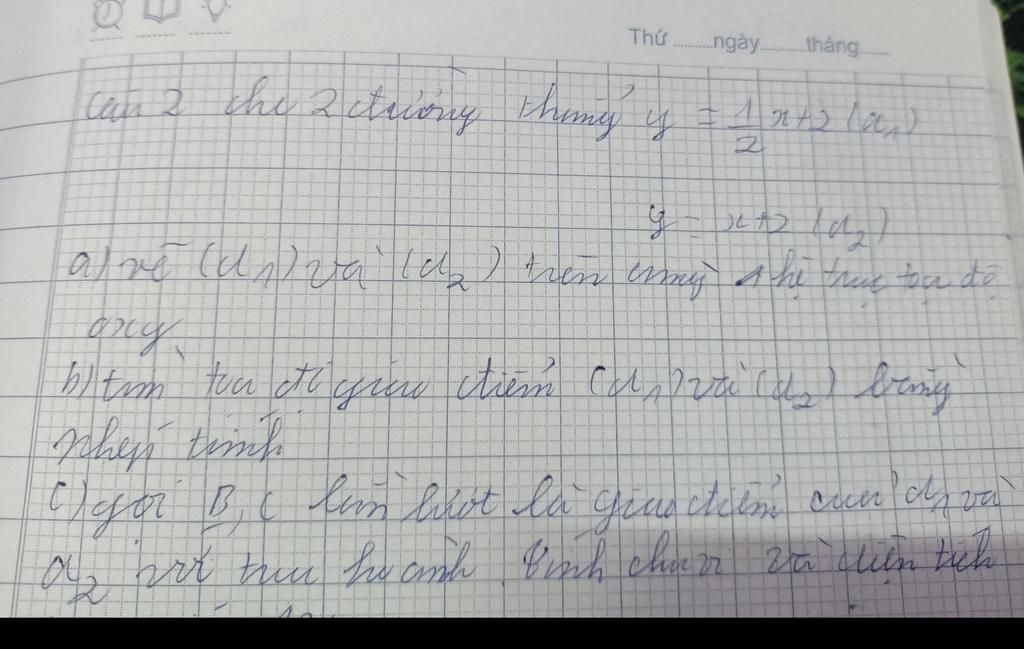 Thứ ......ngày......tháng......
Câu 2 cho 2 đường thẳng y = 1/2 x+2 (d1)
y = x+2 (d2)
a) vẽ (d1) và (d2) trên cùng 1 hệ trục tọa độ
oxy
b) tìm tọa độ giao điểm (d1) và (d2) bằng
phép tính
c) gọi B, C lần lượt là giao điểm của d1 và
d2 với trục hoành. Tính chu vi và diện tích